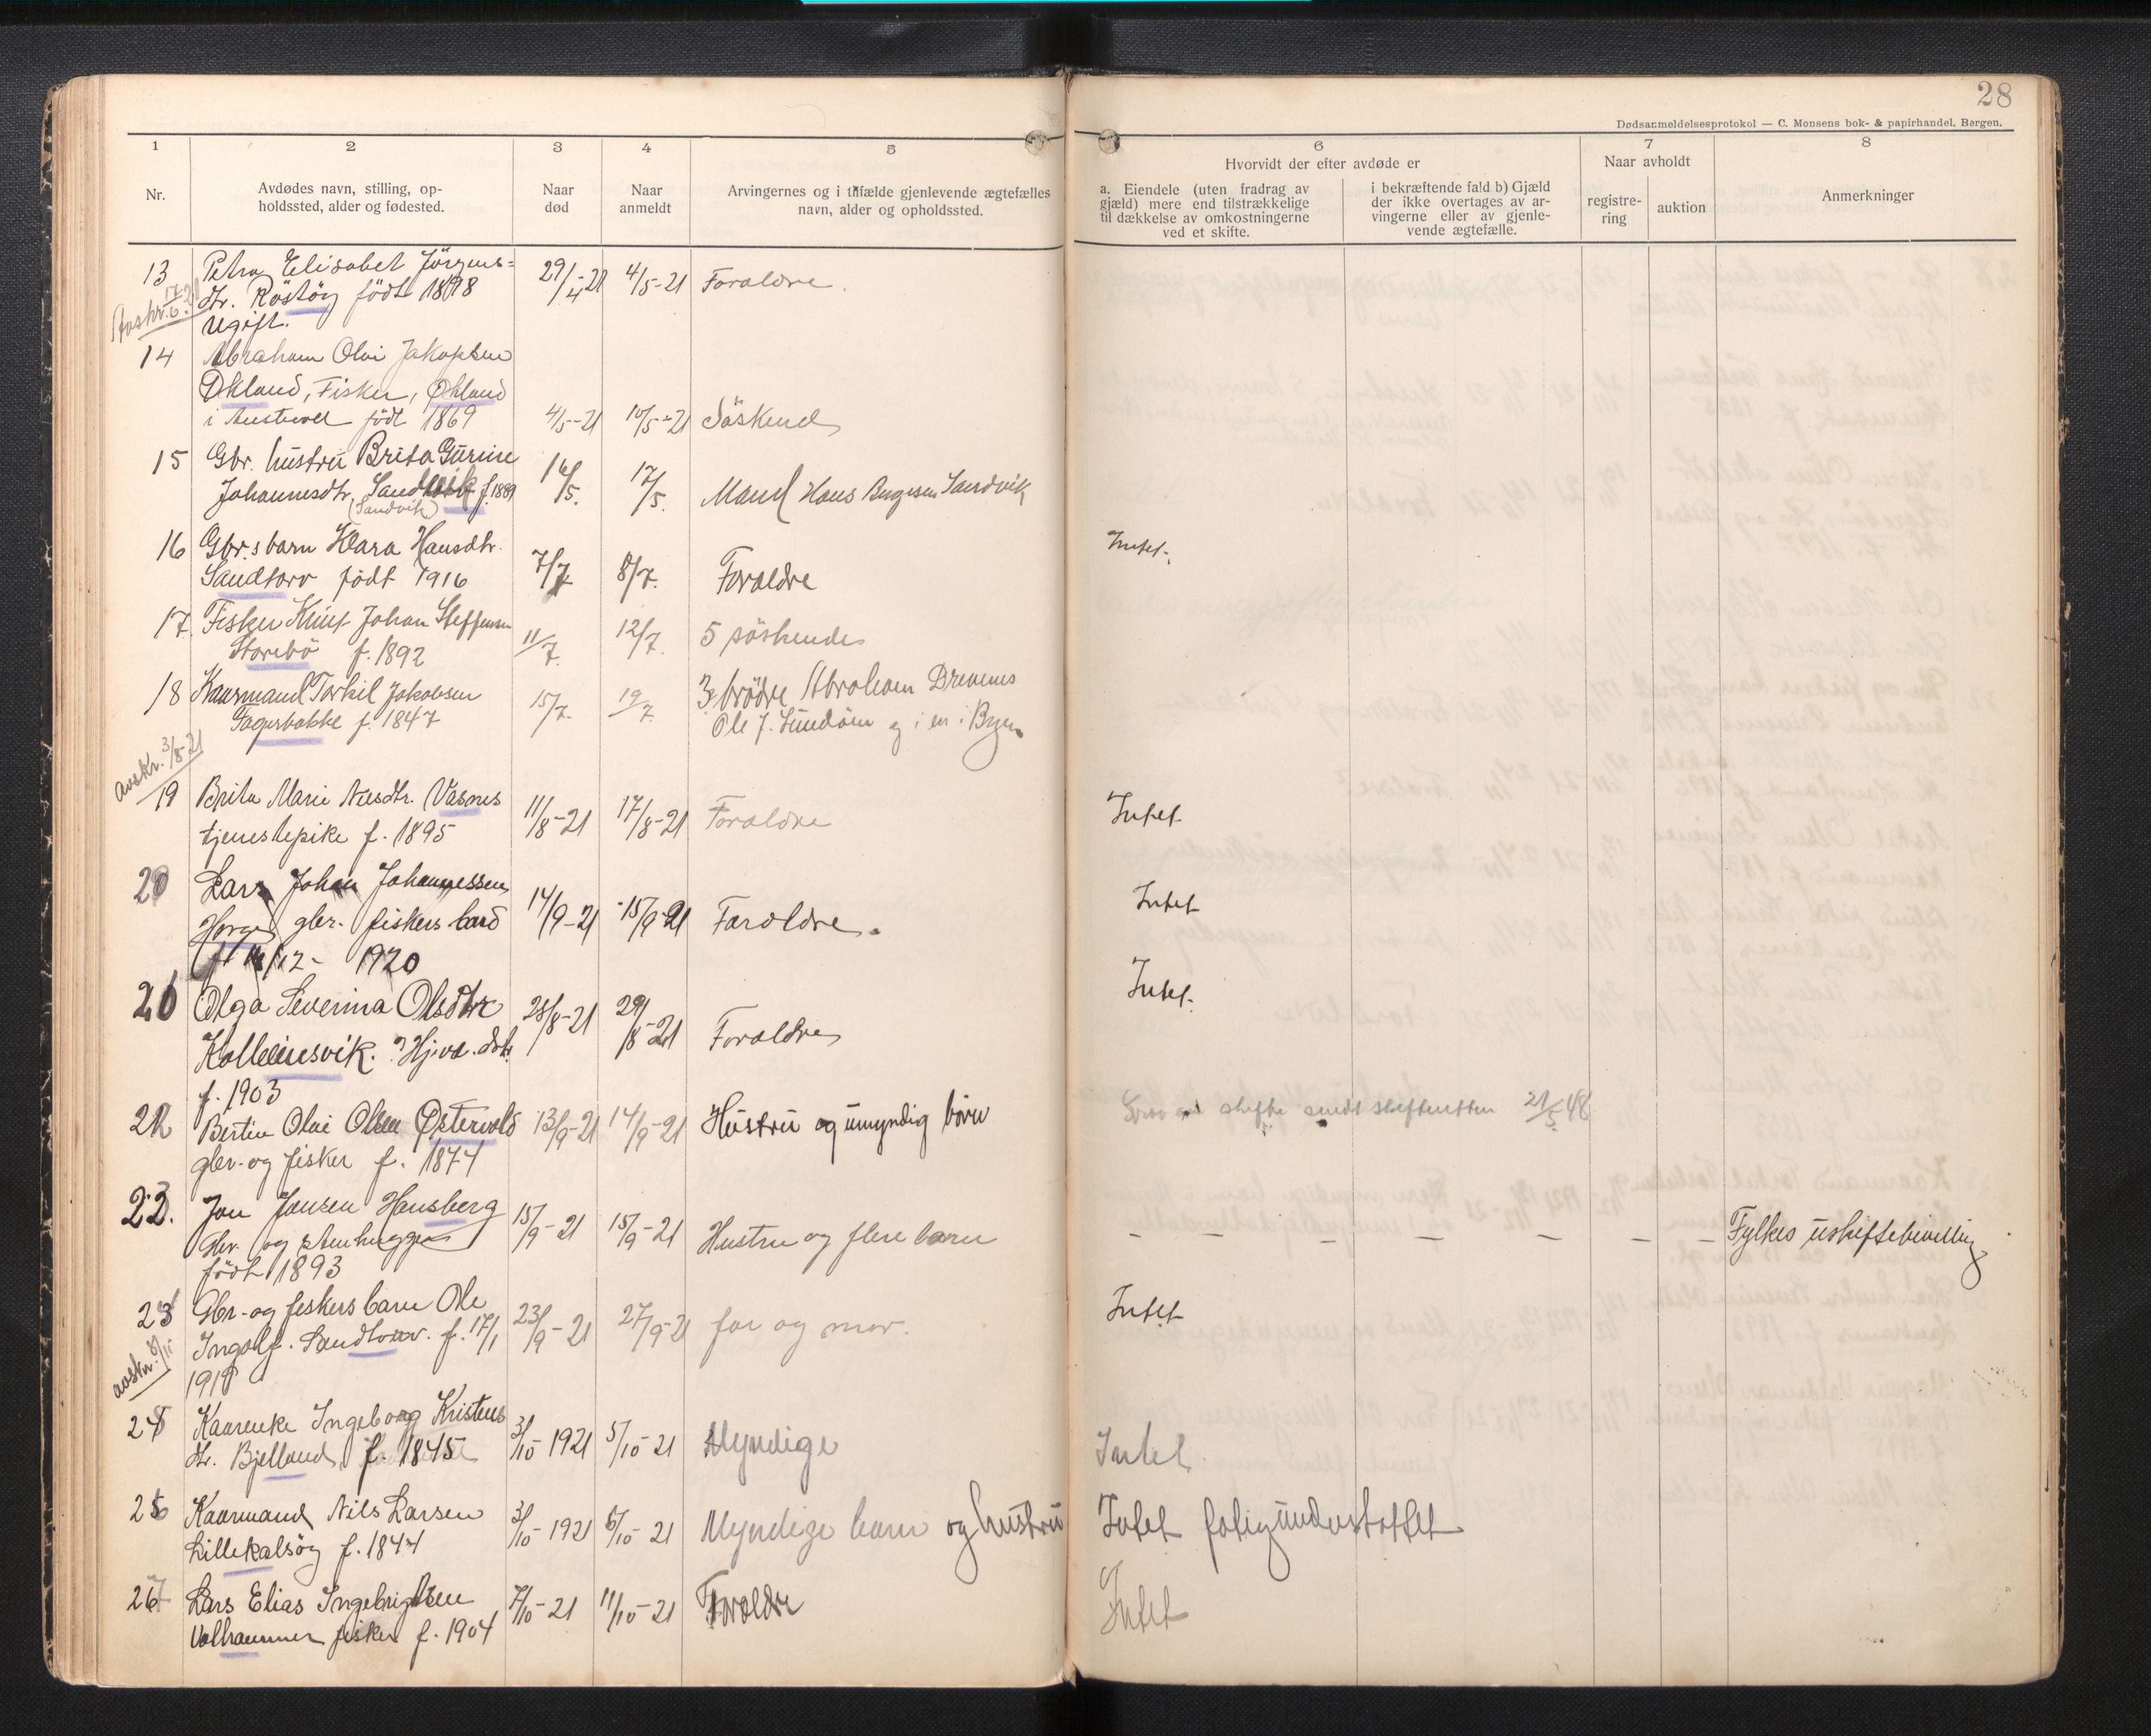 28
Dødsanmeldelsesprotokol — C. Monsens bok- & papirhandel, Bergen.
1 2 3 4 5 6 7 8
Nr.
Avdødes navn, stilling, op-
holdssted, alder og fødested.
Naar
død
Naar
anmeldt
Arvingernes og i tilfælde gjenlevende ægtefælles
navn, alder og opholdssted.
Hvorvidt der efter avdøde er
a. Eiendele (uten fradrag av
gjæld) mere end tilstrækkelige
til dækkelse av omkostningerne
ved et skifte.
i bekræftende fald b) Gjæld
der ikke overtages av ar-
vingerne eller av gjenle-
vende ægtefælle.
Naar avholdt
registre-
ring
auktion
Anmerkninger
13 Petra Elisabet Jörgens=
dtr. Röstöy født 1898 29/4-21 4/5-21 Foraldre.
Ugift.
14 Abraham Olai Jakobsen
Økland, Fisker, Økland
i Austevoll født 1869 4/5-21 10/5-21 Söskend
15 Gbr. hustru Brita Gurine
Johannesdtr. Sandvik f. 1889 16/5. 17/5. Mand Hans Sandvik
(Sandvik)
16 Gbr.s barn Klara Hansdtr.
Sandtorv født 1916 7/7 8/7. Foraldre Intet.
17. Fisker Knut Johan Steffensen
Storebö f. 1892 11/7. 12/7. 5 söskende
18 Kaarmand Torkil Jakobsen
Fagerbakke f. 1847 15/7. 19/7. 3 brödre Abraham Drevenes
Ole J. og i en i Byen
Avskr. 3/8-21
19 Brita Marie Nilsdtr. Vasnes
tjenestepike f. 1895 11/8-21 17/8-21 Foraldre Intet
20 Lars Johan Johannessen
Horge gbr. fiskers barn 14/9-21 15/9-21 Foraldre. Intet
12- 1920
21 Olga Severina Olsdtr
Kolbeinsvik. 28/8-21 29/8-21 Foraldre Intet.
f. 1903
22 Bertin Olai Olsen Østervold 13/9-21 14/9-21 Hustru og umyndig börn skifte sendt skifteretten 21/5-48
gbr. og fisker f. 1874
23. Jon Jonsen Hansberg
Gbr. og stenhugger 15/9-21 15/9-21 Hustru og flere barn — — — — — — — Fylkes uskiftebevilling
födt 1893
23 Gbr- og fiskers barn Ole
Ingolf. Sandtorv. f. 17/1 23/9-21 27/9-21 far og mor. Intet
24 Kaarenke Ingeborg Kristens
dtr. Bjelland f. 1845 3/10-1921 5/10-21 Myndige Intet
25 Kaarmand Nils Larsen
Lillekalsöy f. 1844 3/10-1921 6/10-21 Myndige barn og hustru Intet fatigunderstöttet
26 Lars Elias Ingebrigtsen
Valhammer fisker f. 1904 7/10-21 11/10-21 Foraldre Intet